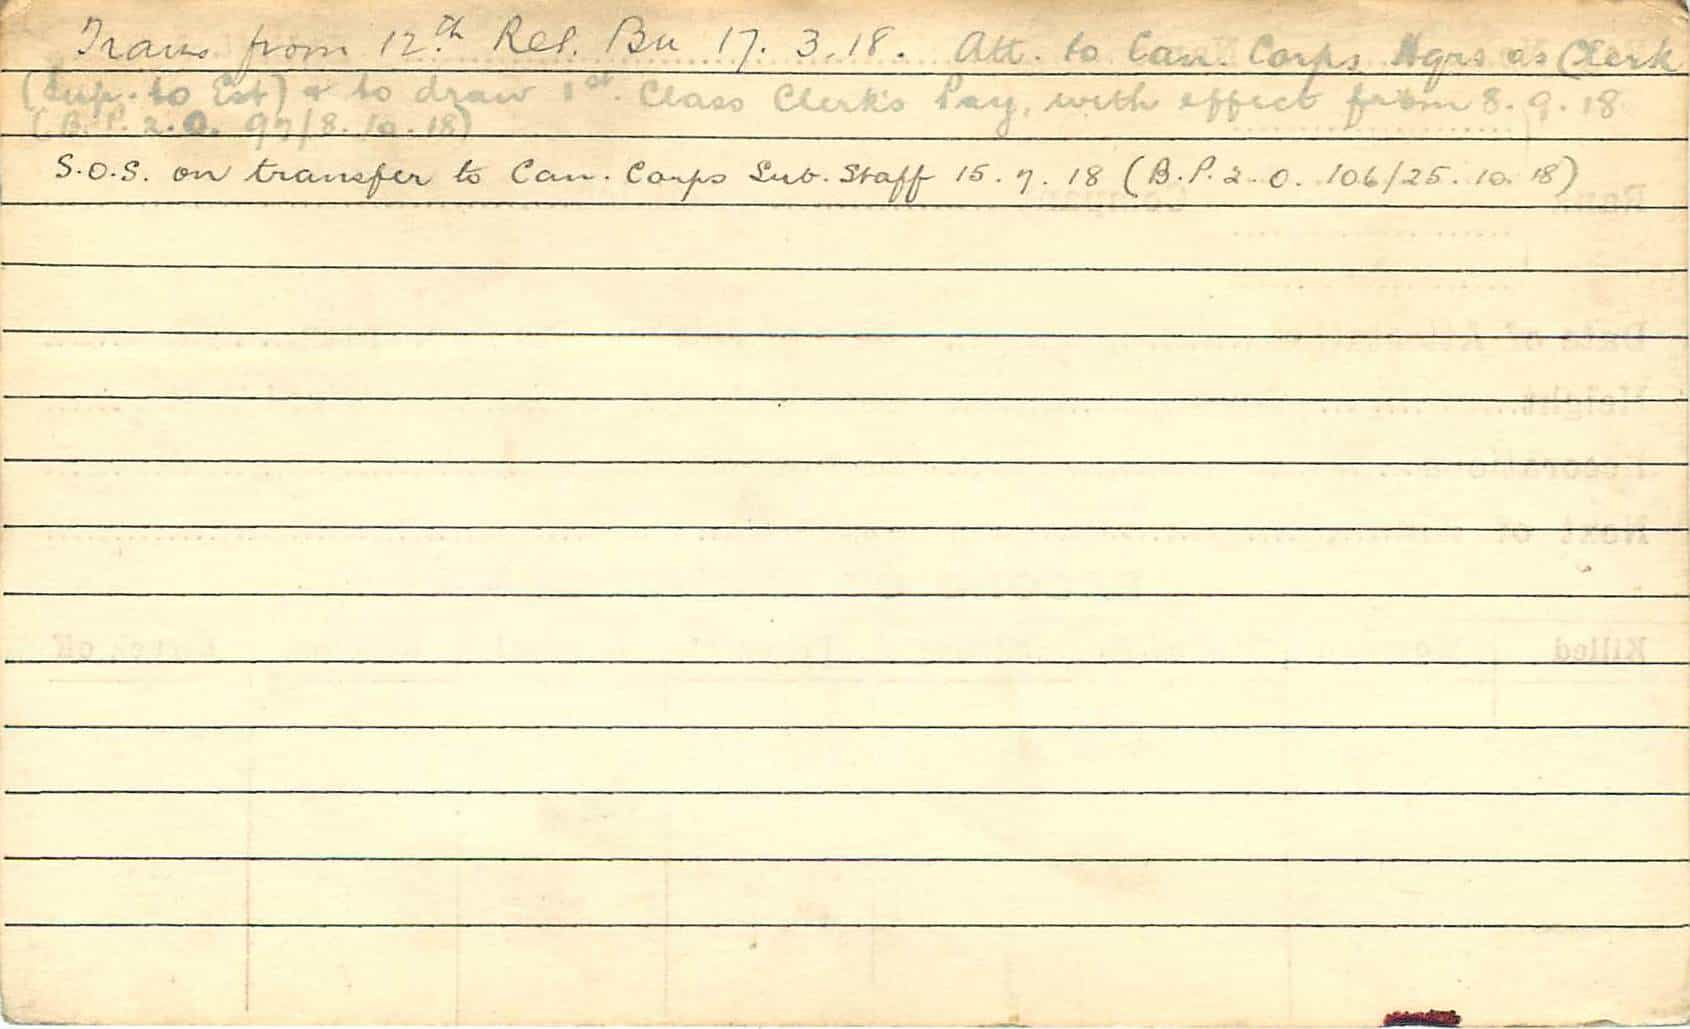 Trans from 12th Res. Bn 17. 3. 18. Att. to Can. Corps Hqrs as Clerk
(Sup. to Est) & to draw 1st Class Clerk's Pay, with effect from 8. 9. 18
(B. P. 2. O. 97/8. 10. 18)
S.O.S. on transfer to Can. Corps Sub. Staff 15. 9. 18 (B. P. 2. O. 106/25. 10. 18)
Rank Company
Date of
Height
Next of
Killed